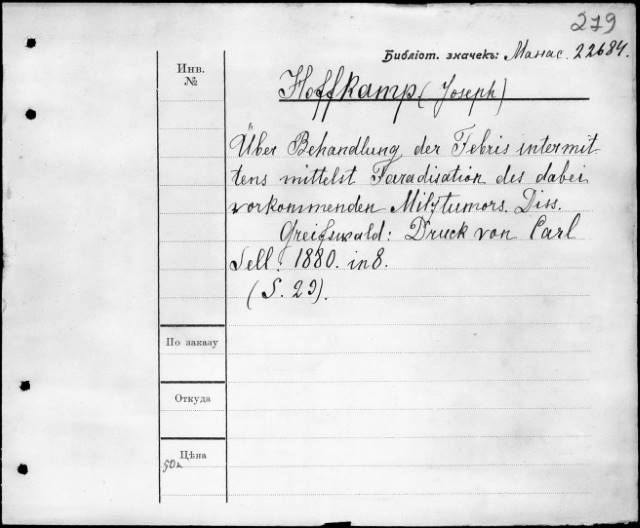 279
Библіот. значекъ: Манас. 22684.
Инв.
№
Hoffkamp (Joseph)
Über Behandlung der Febris intermit-
tens mittelst Faradisation des dabei
vorkommenden Milztumors. Diss.
Greifswald: Druck von Carl
Sell. 1880. in 8.
(S. 29).
По заказу
Откуда
Цѣна
50к